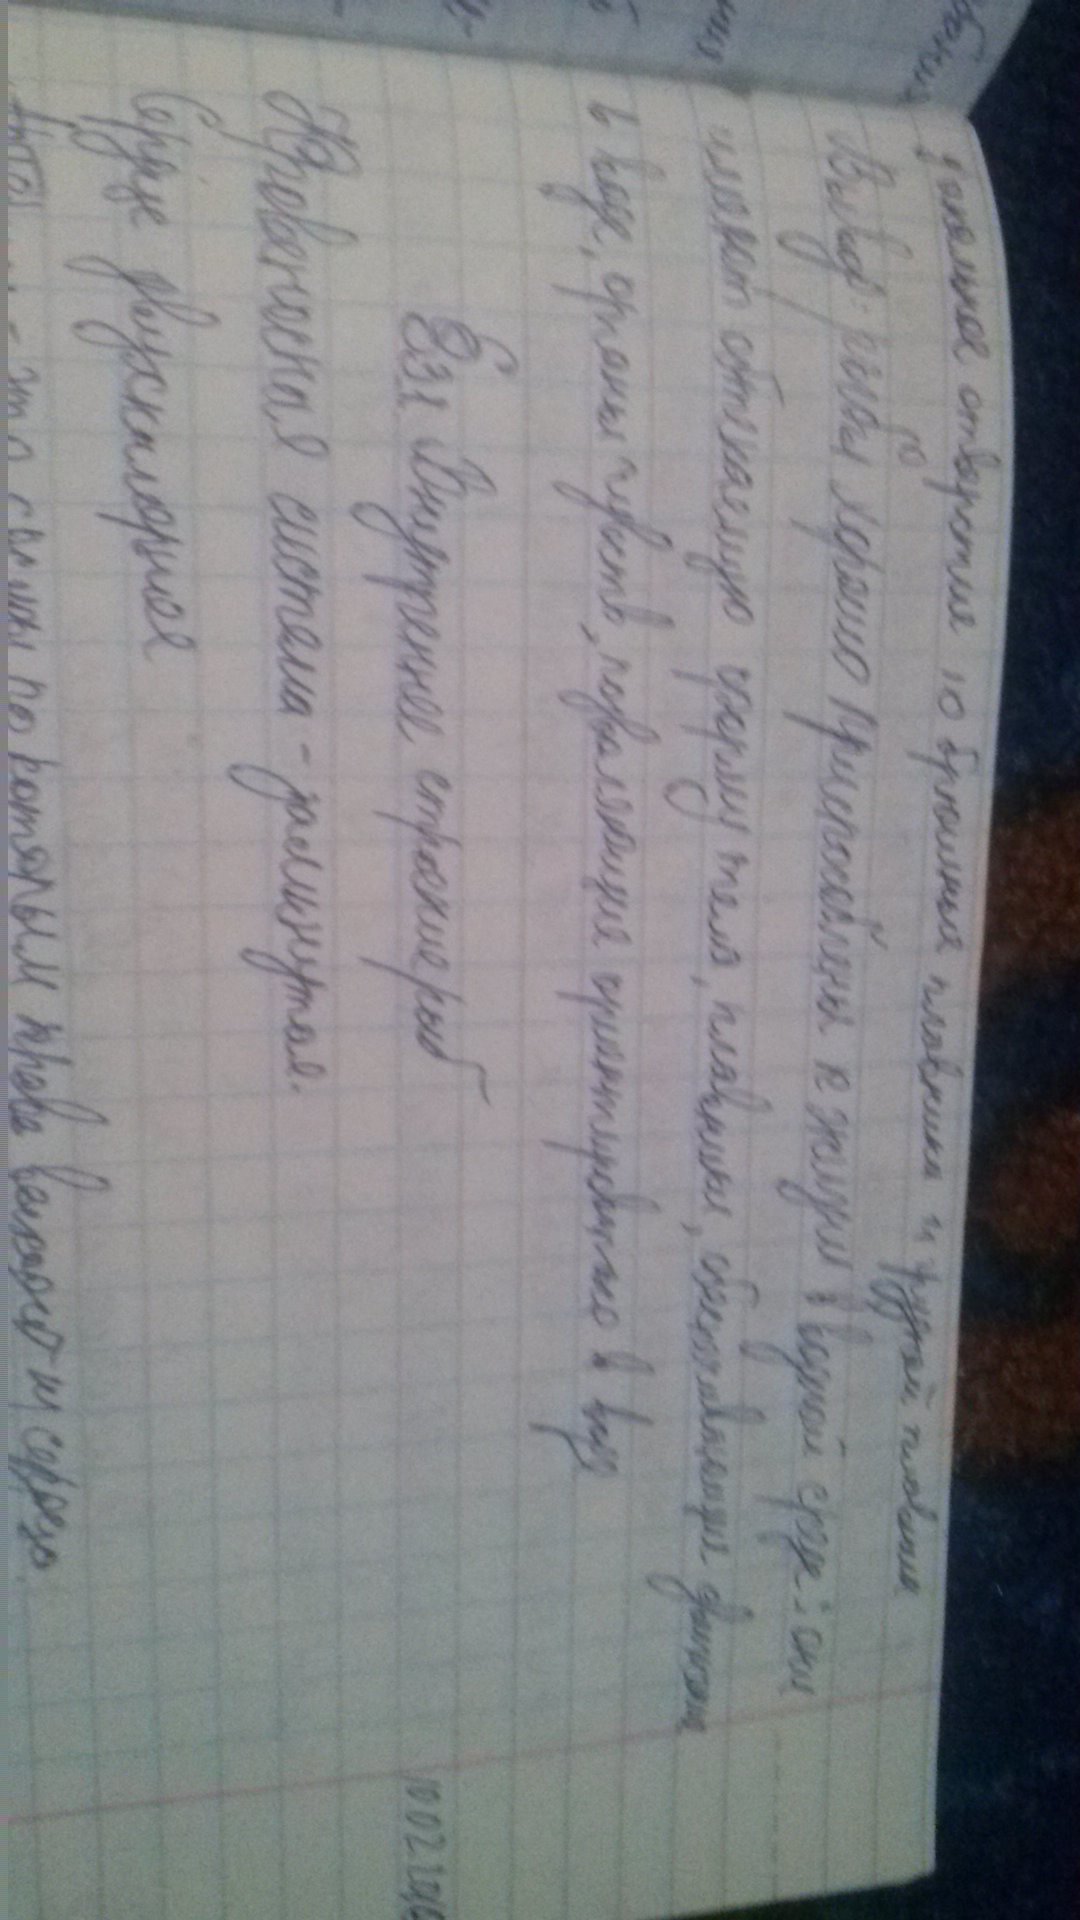 отверстие 10 брюшные плавники и грудной плавник
Вывод: рыбы хорошо приспособлены к жизни в водной среде: они
имеют обтекаемую форму тела, плавники, обеспечивающие движение
в воде, органы чувств, позволяющие ориентироваться в воде
§31 Внутреннее строение рыб
Кровеносная система - замкнутая.
Сердце двухкамерное
- это сосуды по которым кровь выходит из сердца.